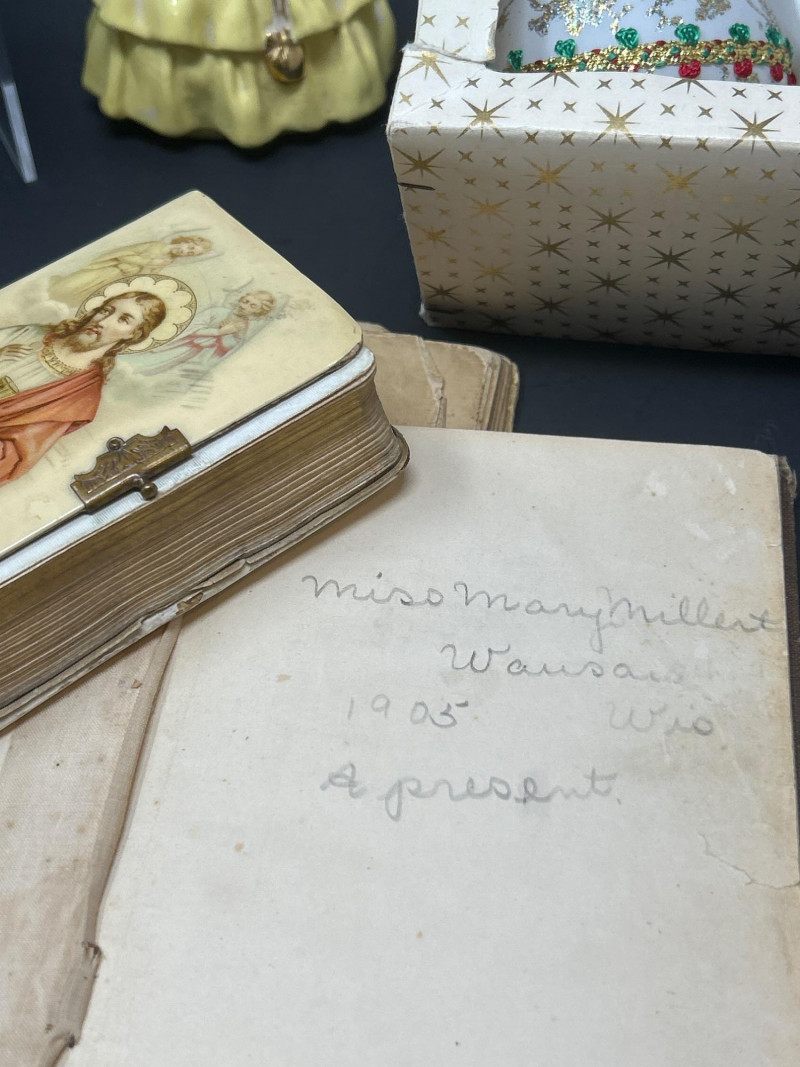 Miss Mary Millert
Wausau
1905 Wis
A present.